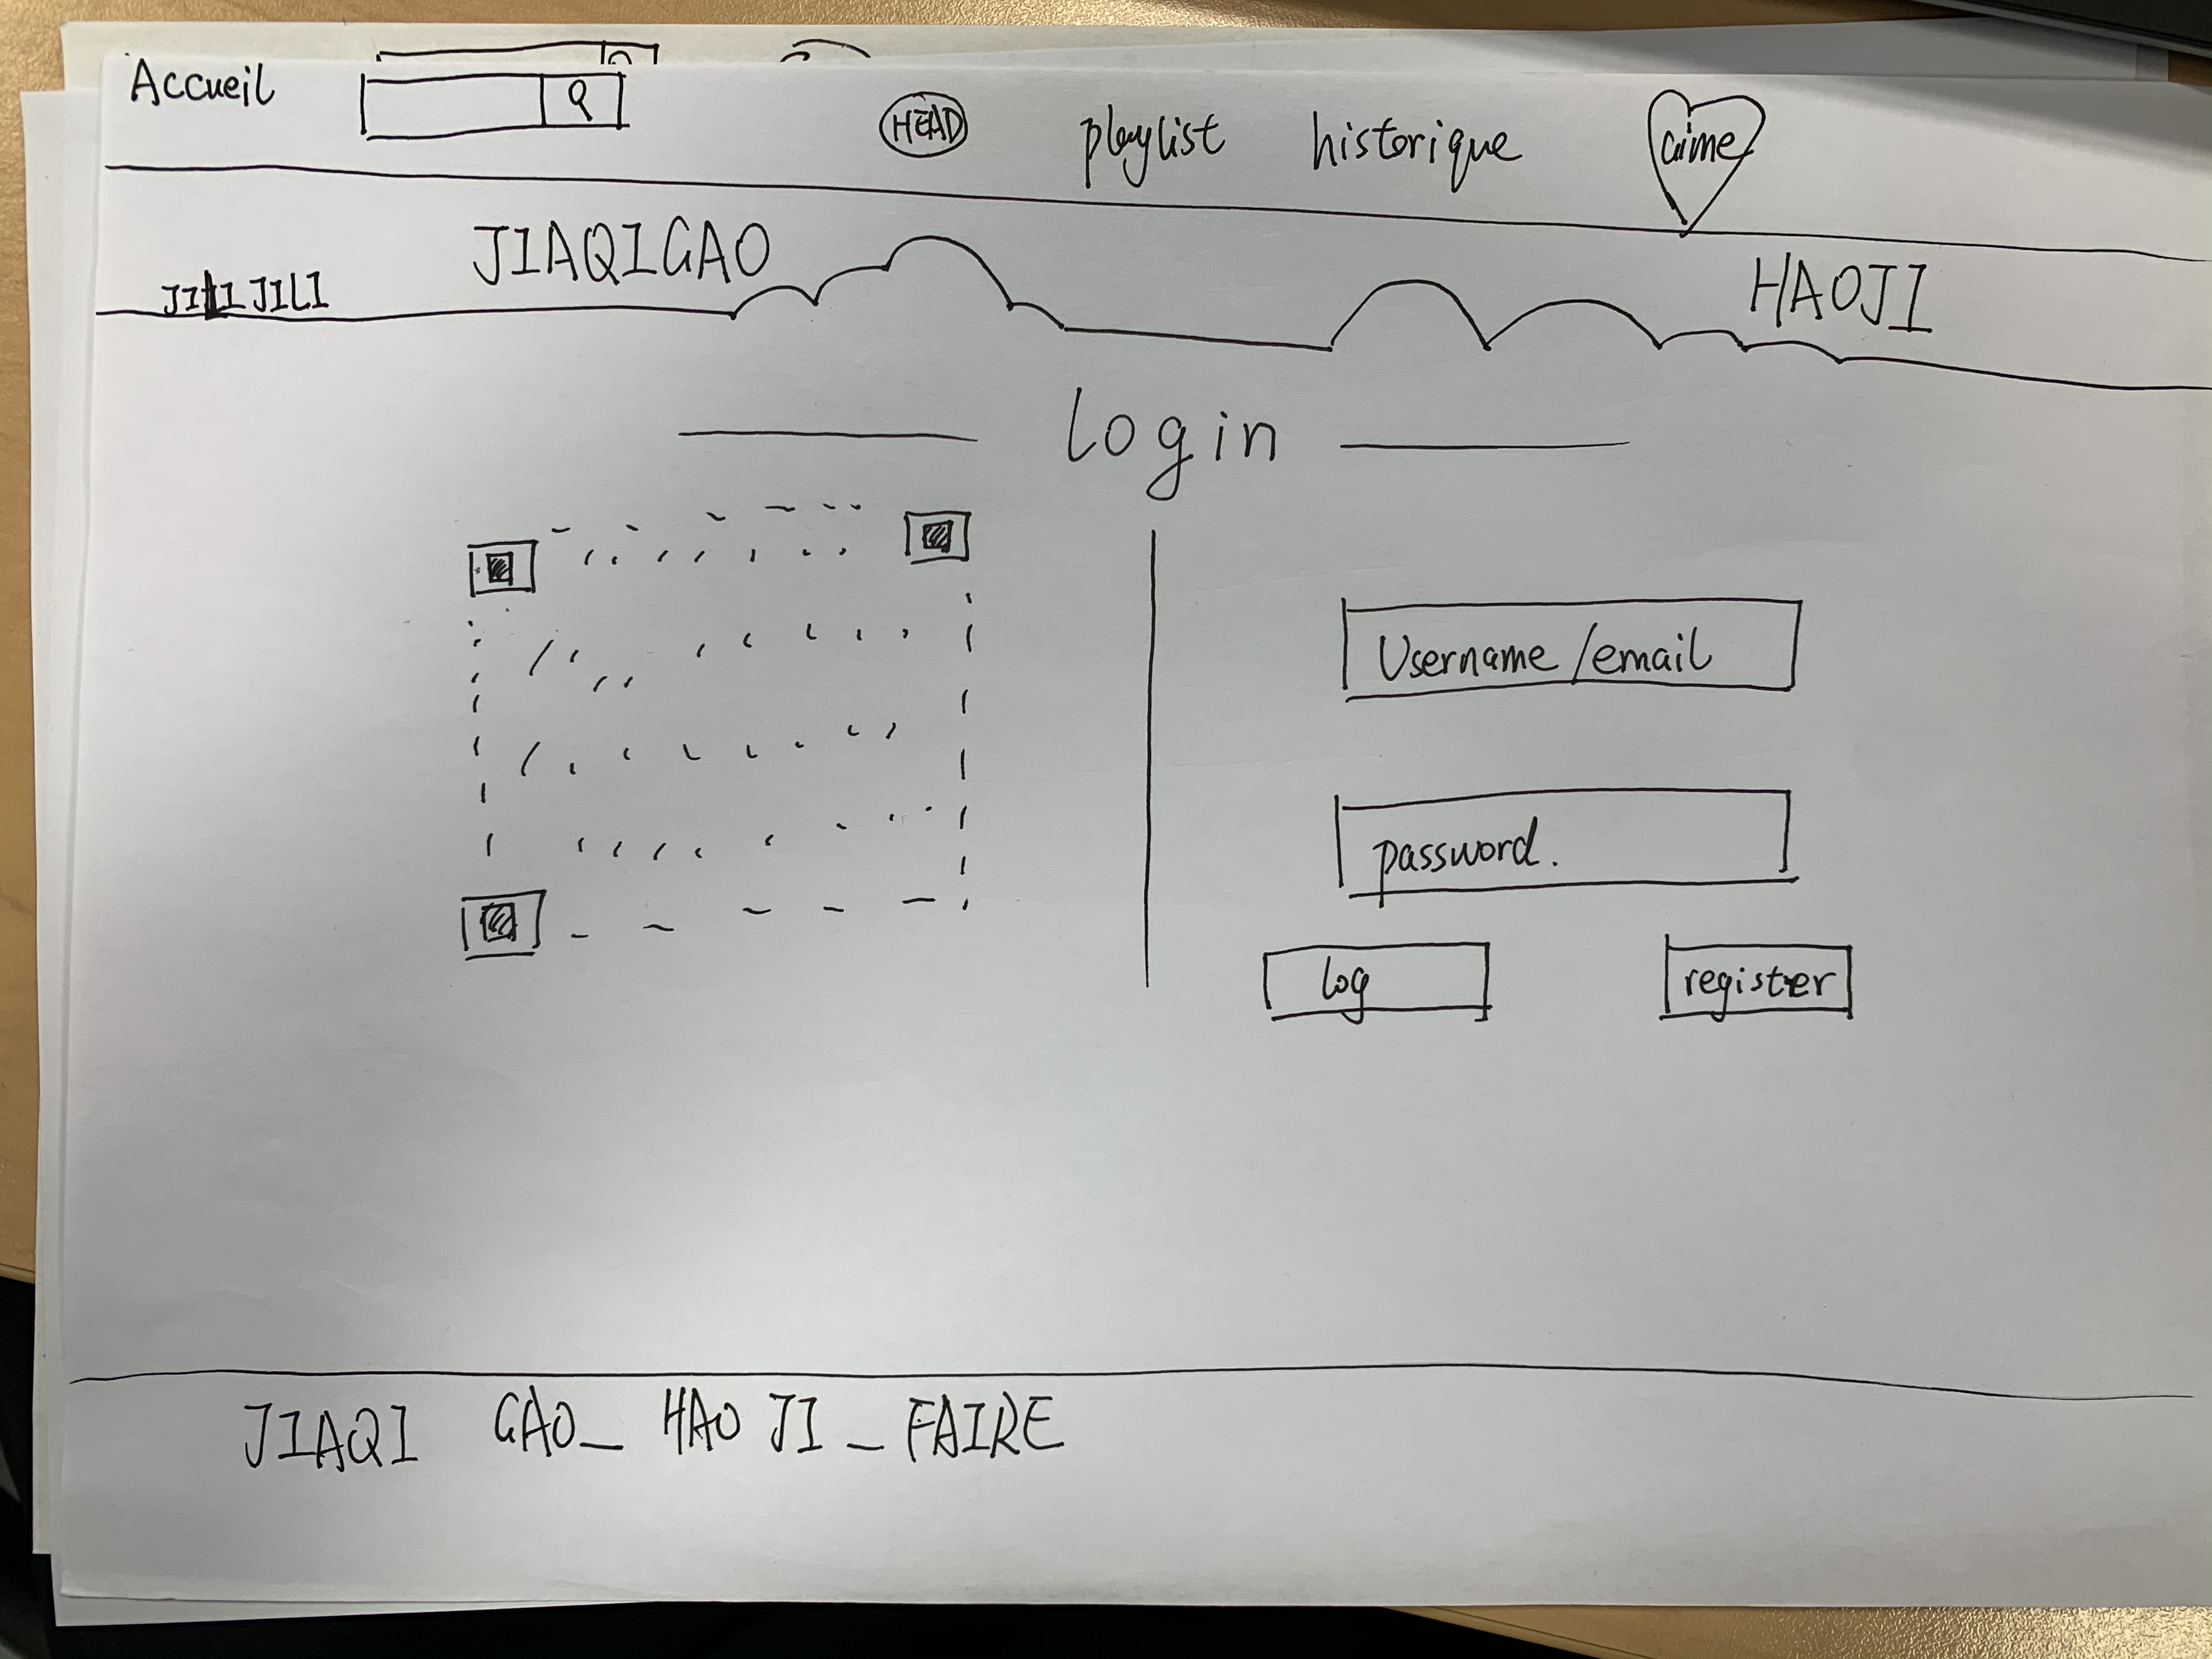 Accueil
HEAD playlist historique aime
JIAQIGAO
JILI JILI HAOJI
login
Username/email
password.
log register
JIAQI GAO_ HAO JI _ FAIRE